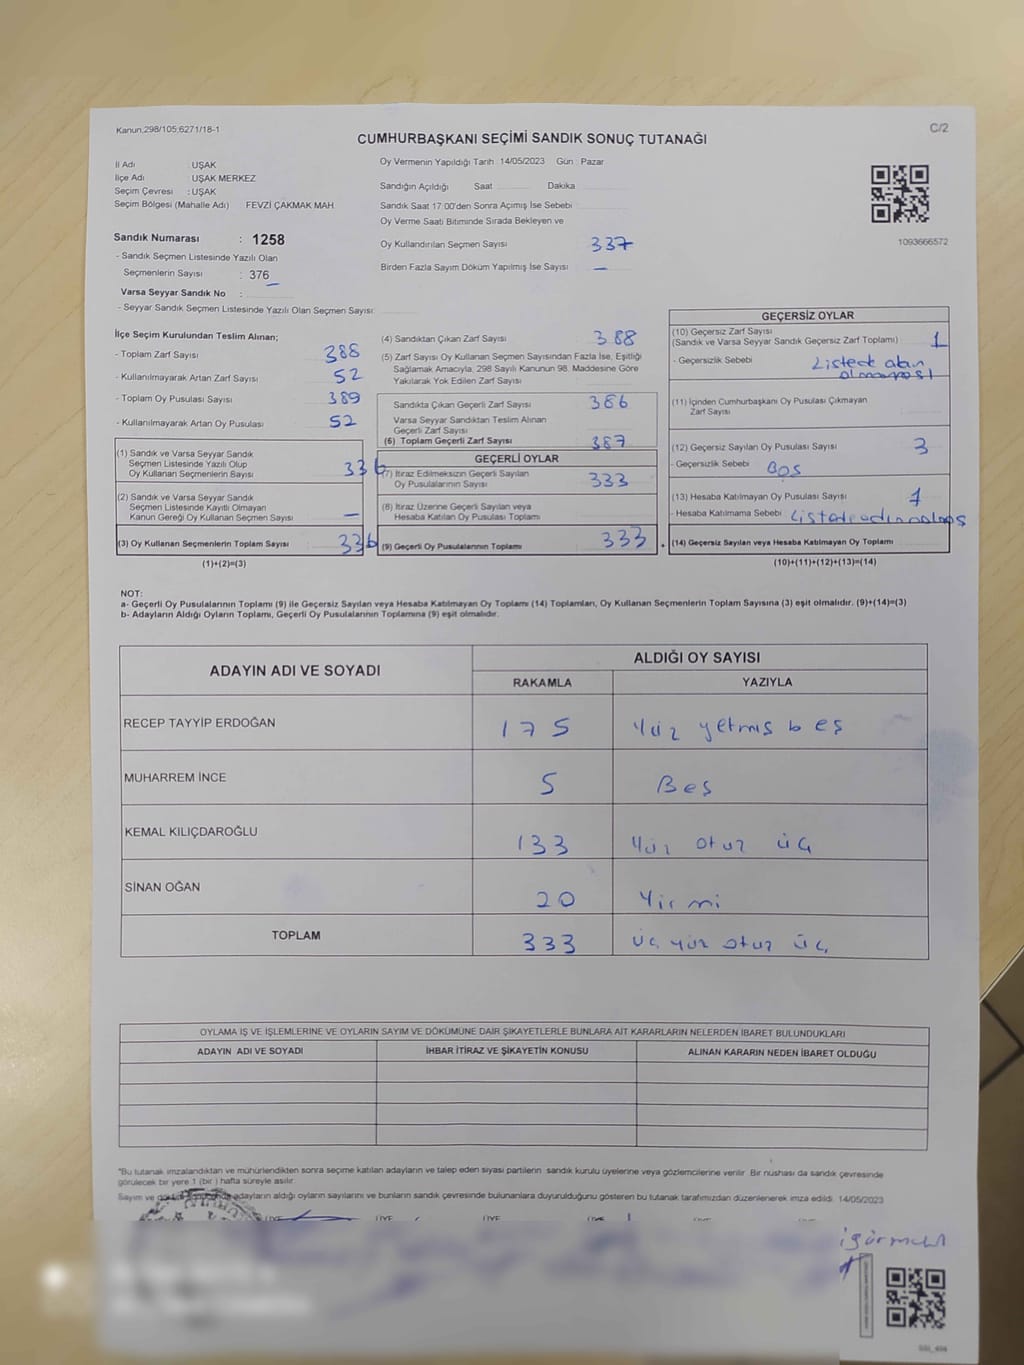 Kanun;298/105;6271/18-1
C/2
CUMHURBAŞKANI SEÇİMİ SANDIK SONUÇ TUTANAĞI
İl Adı : UŞAK
İlçe Adı : UŞAK MERKEZ
Seçim Çevresi : UŞAK
Seçim Bölgesi (Mahalle Adı) : FEVZİ ÇAKMAK MAH.
Oy Vermenin Yapıldığı Tarih :14/05/2023 Gün : Pazar
Sandığın Açıldığı Saat Dakika
Sandık Saat 17:00'den Sonra Açımış İse Sebebi
Oy Verme Saati Bitiminde Sırada Bekleyen ve
Oy Kullandırılan Seçmen Sayısı 337
Birden Fazla Sayım Döküm Yapılmış İse Sayısı —
1093666572
Sandık Numarası : 1258
- Sandık Seçmen Listesinde Yazılı Olan
Seçmenlerin Sayısı : 376
Varsa Seyyar Sandık No :
- Seyyar Sandık Seçmen Listesinde Yazılı Olan Seçmen Sayısı:
İlçe Seçim Kurulundan Teslim Alınan;
- Toplam Zarf Sayısı 388
- Kullanılmayarak Artan Zarf Sayısı 52
- Toplam Oy Pusulası Sayısı 389
- Kullanılmayarak Artan Oy Pusulası 52
(1) Sandık ve Varsa Seyyar Sandık
Seçmen Listesinde Yazılı Olup
Oy Kullanan Seçmenlerin Sayısı 336
(2) Sandık ve Varsa Seyyar Sandık
Seçmen Listesinde Kayıtlı Olmayan
Kanun Gereği Oy Kullanan Seçmen Sayısı —
(3) Oy Kullanan Seçmenlerin Toplam Sayısı 336
(1)+(2)=(3)
(4) Sandıktan Çıkan Zarf Sayısı 388
(5) Zarf Sayısı Oy Kullanan Seçmen Sayısından Fazla İse, Eşitliği
Sağlamak Amacıyla, 298 Sayılı Kanunun 98. Maddesine Göre
Yakılarak Yok Edilen Zarf Sayısı
Sandıkta Çıkan Geçerli Zarf Sayısı 386
Varsa Seyyar Sandıktan Teslim Alınan
Geçerli Zarf Sayısı
(6) Toplam Geçerli Zarf Sayısı 387
GEÇERLİ OYLAR
(7) İtiraz Edilmeksizin Geçerli Sayılan
Oy Pusulalarının Sayısı 333
(8) İtiraz Üzerine Geçerli Sayılan veya
Hesaba Katılan Oy Pusulası Toplamı
(9) Geçerli Oy Pusulalarının Toplamı 333
GEÇERSİZ OYLAR
(10) Geçersiz Zarf Sayısı
(Sandık ve Varsa Seyyar Sandık Geçersiz Zarf Toplamı) 1
- Geçersizlik Sebebi
(11) İçinden Cumhurbaşkanı Oy Pusulası Çıkmayan
Zarf Sayısı
(12) Geçersiz Sayılan Oy Pusulası Sayısı 3
- Geçersizlik Sebebi Boş
(13) Hesaba Katılmayan Oy Pusulası Sayısı 1
- Hesaba Katılmama Sebebi
(14) Geçersiz Sayılan veya Hesaba Katılmayan Oy Toplamı
(10)+(11)+(12)+(13)=(14)
NOT:
a- Geçerli Oy Pusulalarının Toplamı (9) ile Geçersiz Sayılan veya Hesaba Katılmayan Oy Toplamı (14) Toplamları, Oy Kullanan Seçmenlerin Toplam Sayısına (3) eşit olmalıdır. (9)+(14)=(3)
b- Adayların Aldığı Oyların Toplamı, Geçerli Oy Pusulalarının Toplamına (9) eşit olmalıdır.
ADAYIN ADI VE SOYADI ALDIĞI OY SAYISI
RAKAMLA YAZIYLA
RECEP TAYYİP ERDOĞAN 175 Yüz yetmiş beş
MUHARREM İNCE 5 Beş
KEMAL KILIÇDAROĞLU 133 Yüz otuz üç
SİNAN OĞAN 20 Yirmi
TOPLAM 333 üç yüz otuz üç
OYLAMA İŞ VE İŞLEMLERİNE VE OYLARIN SAYIM VE DÖKÜMÜNE DAİR ŞİKAYETLERLE BUNLARA AİT KARARLARIN NELERDEN İBARET BULUNDUKLARI
ADAYIN ADI VE SOYADI İHBAR İTİRAZ VE ŞİKAYETİN KONUSU ALINAN KARARIN NEDEN İBARET OLDUĞU
"Bu tutanak imzalandıktan ve mühürlendikten sonra seçime katılan adayların ve talep eden siyasi partilerin sandık kurulu üyelerine veya gözlemcilerine verilir. Bir nüshası da sandık çevresinde
görülecek bir yere 1 (bir ) hafta süreyle asılır.
Sayım ve adayların aldığı oyların sayılarını ve bunların sandık çevresinde bulunanlara duyurulduğunu gösteren bu tutanak tarafımızdan düzenlenerek imza edildi. 14/05/2023
ÜYE ÜYE ÜYE ÜYE